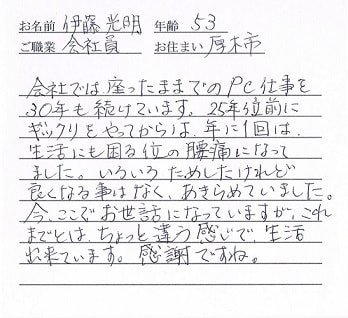 お名前 伊藤光明 年齢 53
ご職業 会社員 お住まい 厚木市
会社では座ったままでのPC仕事を
30年も続けています。25年位前に
ギックリをやってからは、年に1回は、
生活にも困る位の腰痛になって
ました。いろいろためしたけれど
良くなる事はなく、あきらめていました。
今、ここでお世話になっていますが、これ
までとは、ちょっと違う感じで、生活
出来ています。感謝ですね。